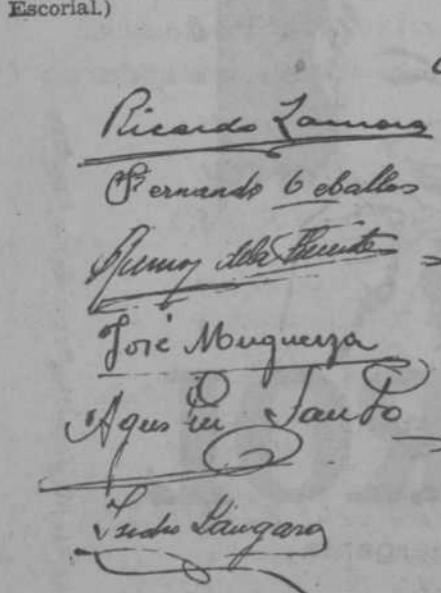 Escorial.)
Ricardo Zamora
Fernando Ceballos
de la Fuente
José Muguerza
Agustin Sauto
Isidro Lángara